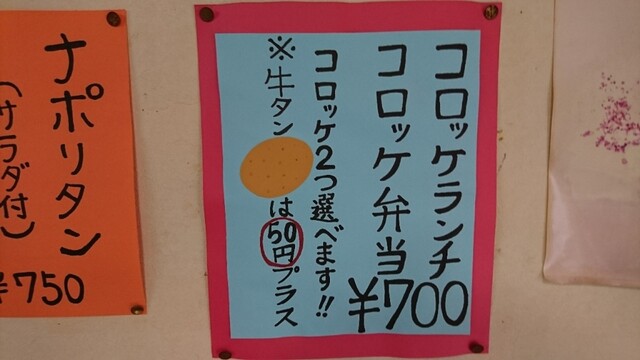 コロッケランチ
コロッケ弁当
¥700
コロッケ2つ選べます!!
※牛タンは50円プラス
ナポリタン
(サラダ付)
¥750